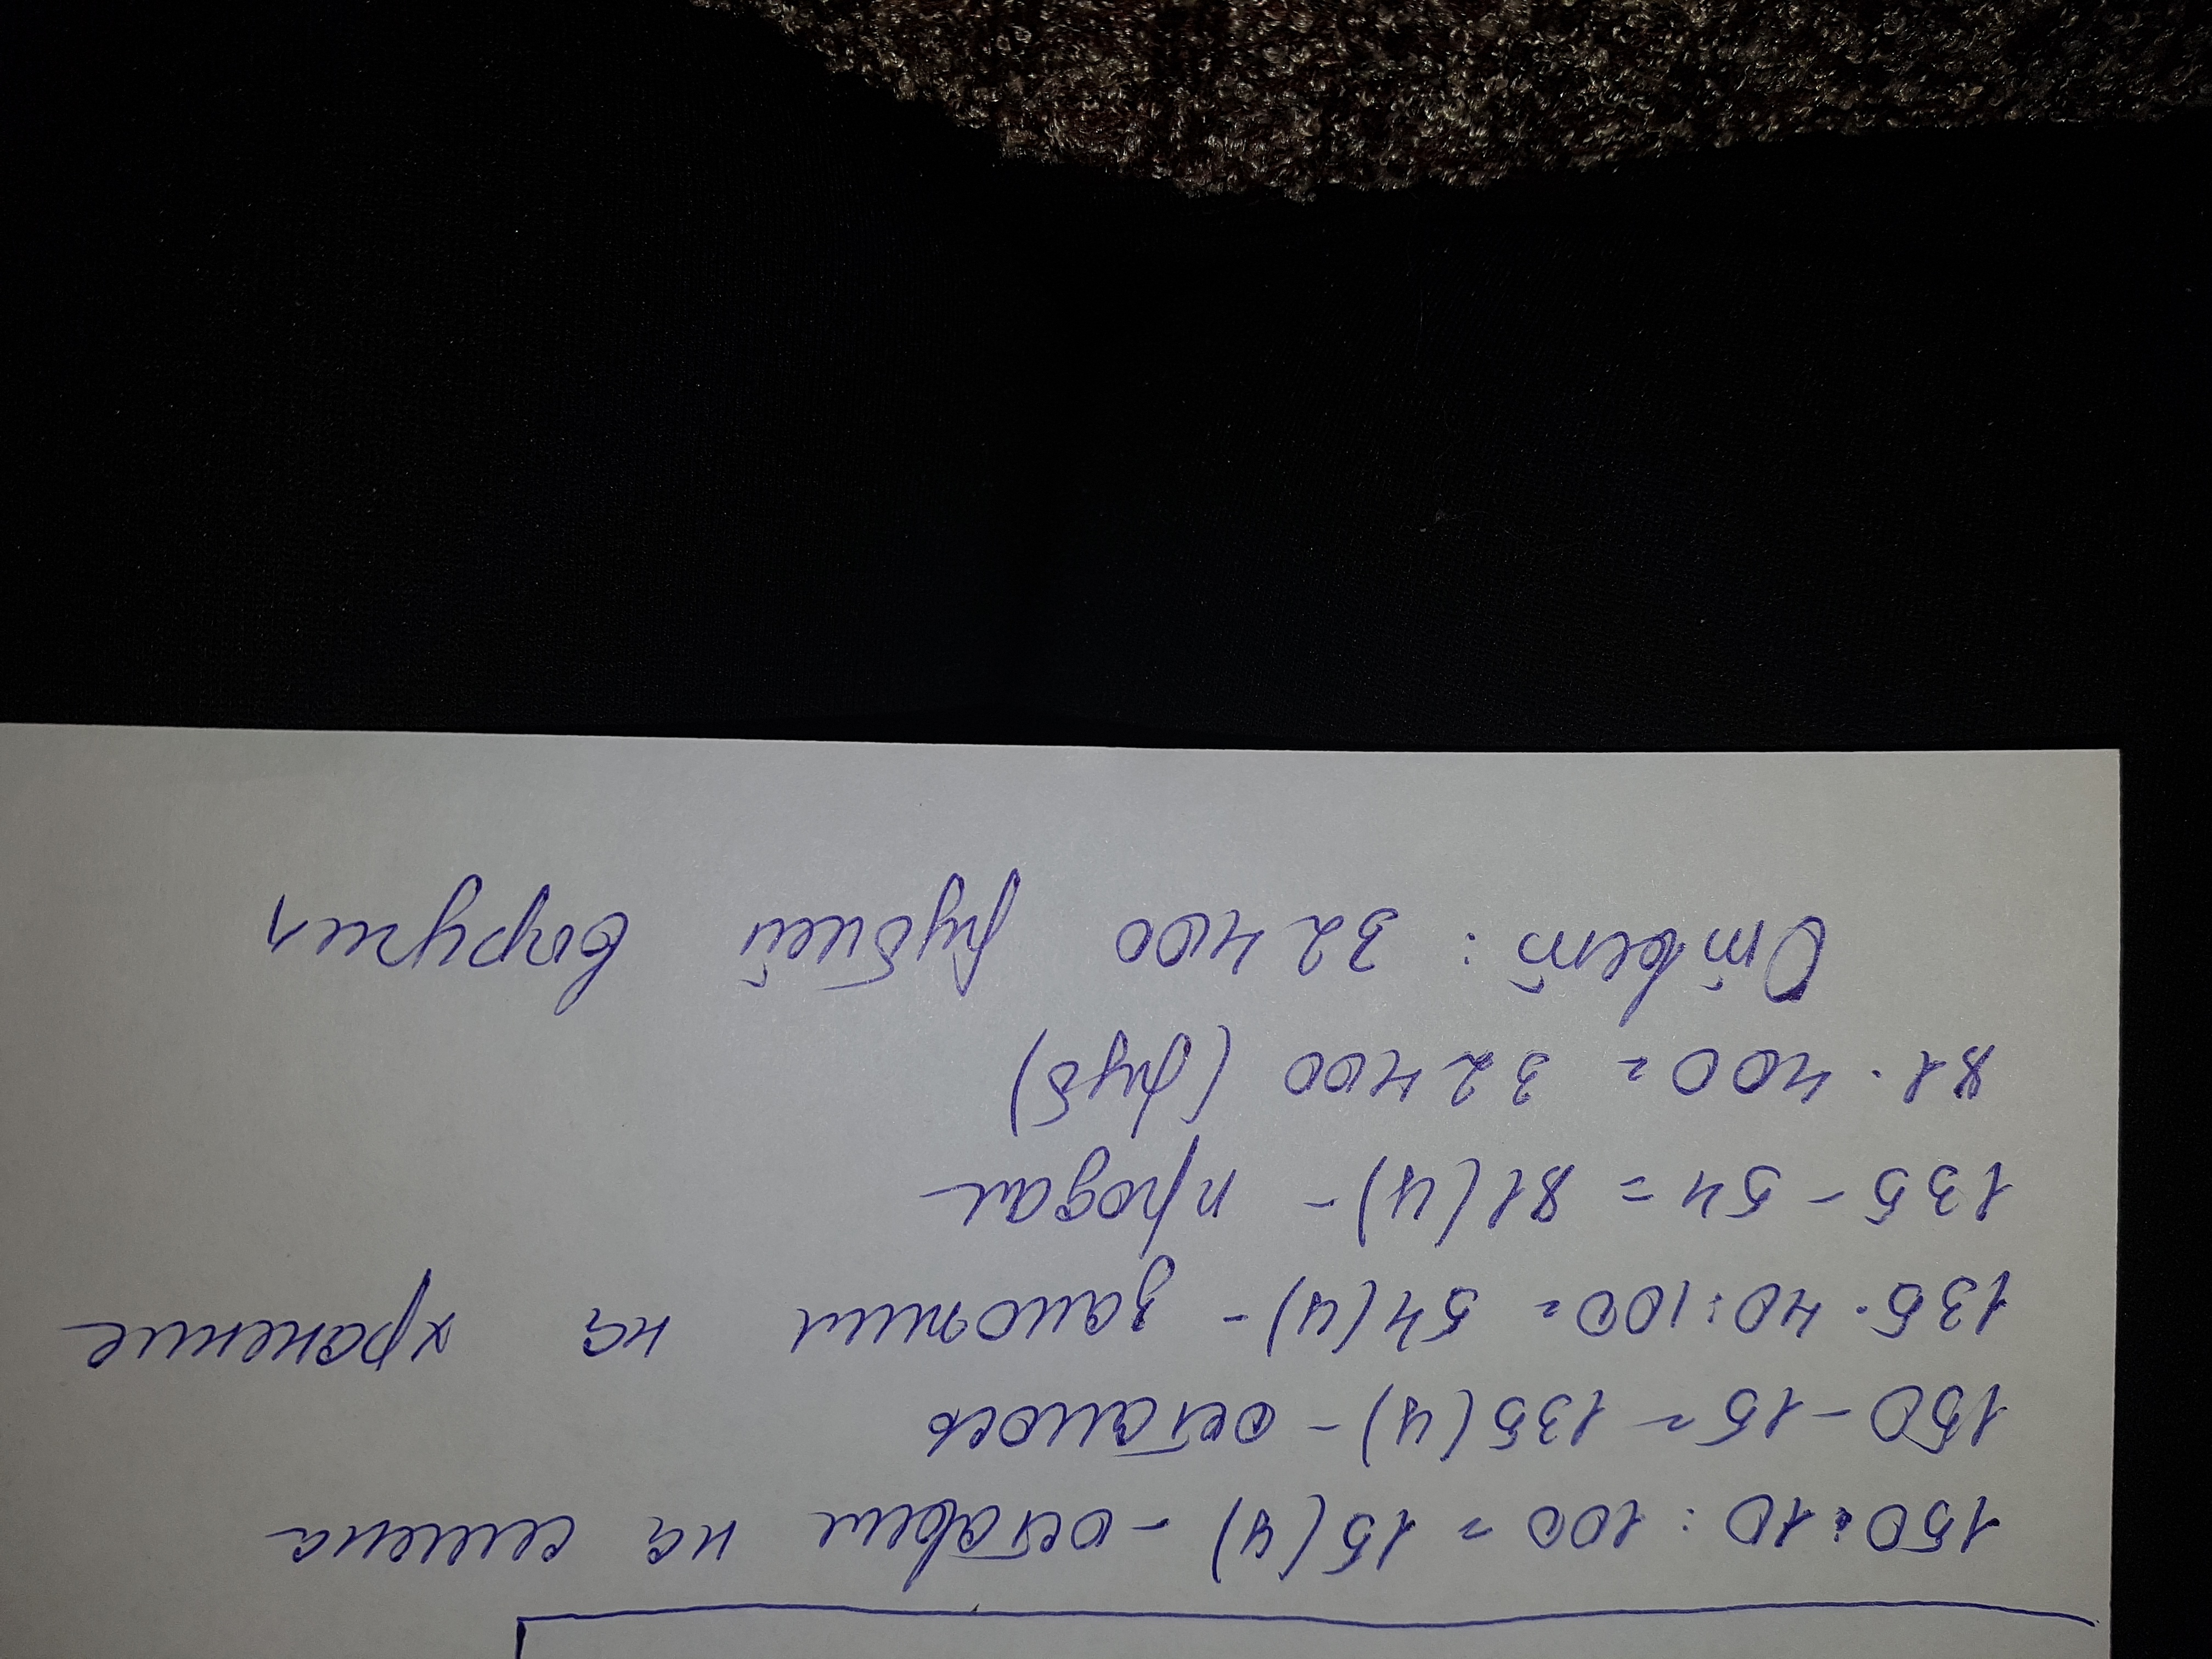 150·10 : 100 = 15 (ц) - оставил на семена
150 - 15 = 135 (ц) - осталось
135 · 40 : 100 = 54 (ц) - заложил на хранение
135 - 54 = 81 (ц) - продал
81 · 400 = 32 400 (руб)
Ответ : 32 400 рублей выручил